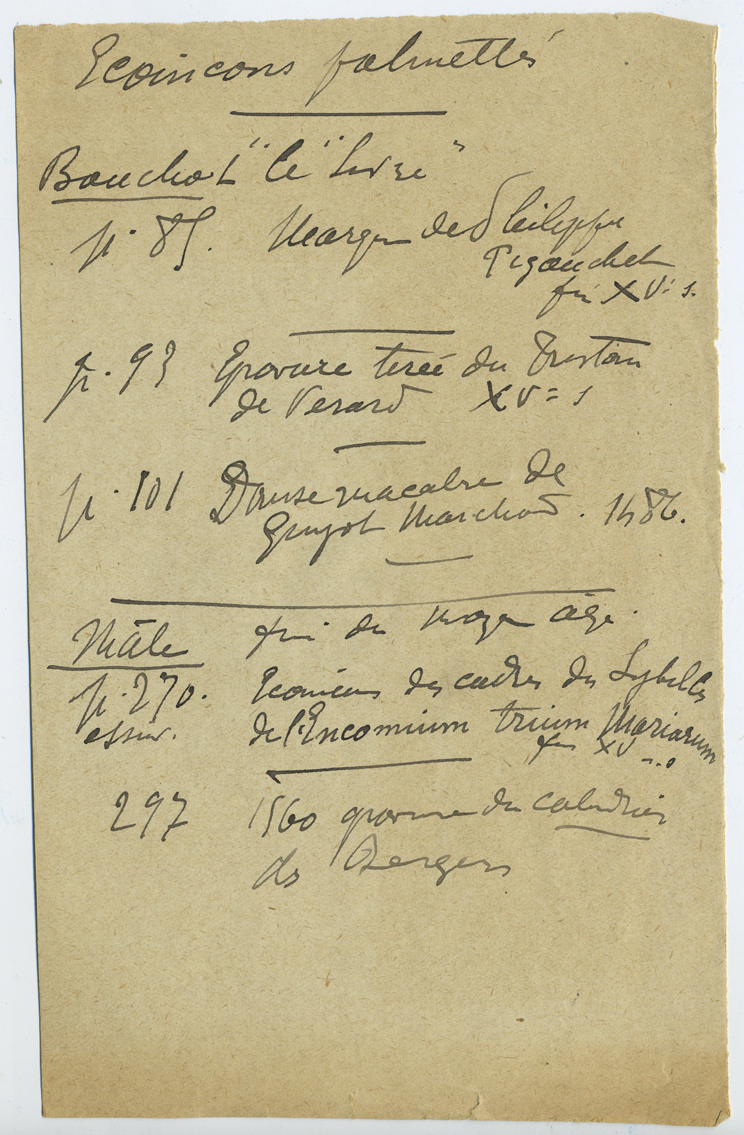 Ecoincons palmettés
Bouchot "le "Livre"
p. 85. Marque de Philippe
Pigouchet
fin XVe s.
p. 93 Gravure tirée du Tristan
de Verard XVe s
p. 101 Danse macabre de
Guyot Marchand. 1486.
Mâle fin du moyen âge.
p. 270. Ecoincons des cadres des Sybilles
et suiv. de l'Encomium trium Mariarum
fin XV
297 1560 gravure du calendrier
des Bergers